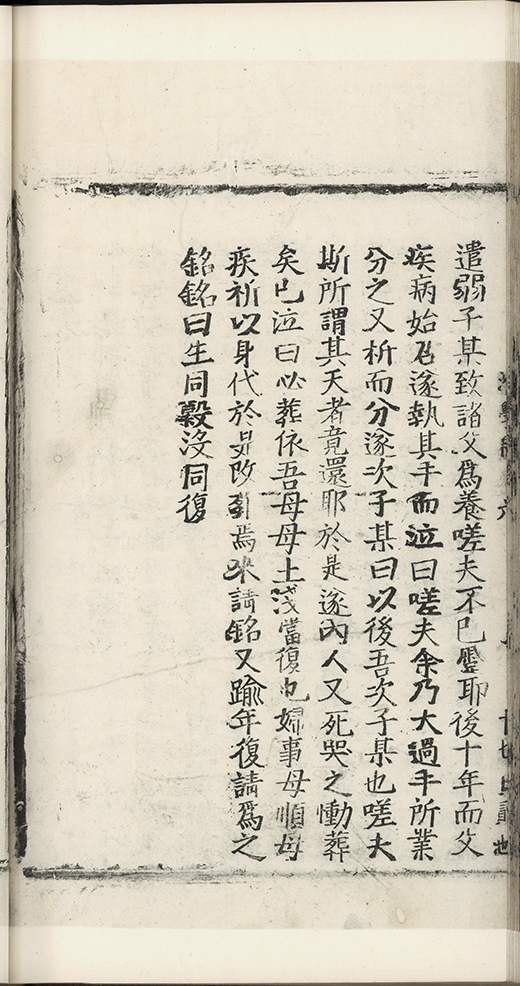 遣弱子某致諸父爲養嗟夫不已壐耶後十年而父
疾病始召遂執其手而泣曰嗟夫余乃大過乎所業
分之又析而分遂次子某曰以後吾次子某也嗟夫
斯所謂其天者竟還耶於是遂內人又死哭之慟葬
矣已泣曰必葬依吾母母土淺當復也婦事母順母
疾祈以身代於是改引焉來請銘又踰年復請爲之
銘銘曰生同穀沒同復